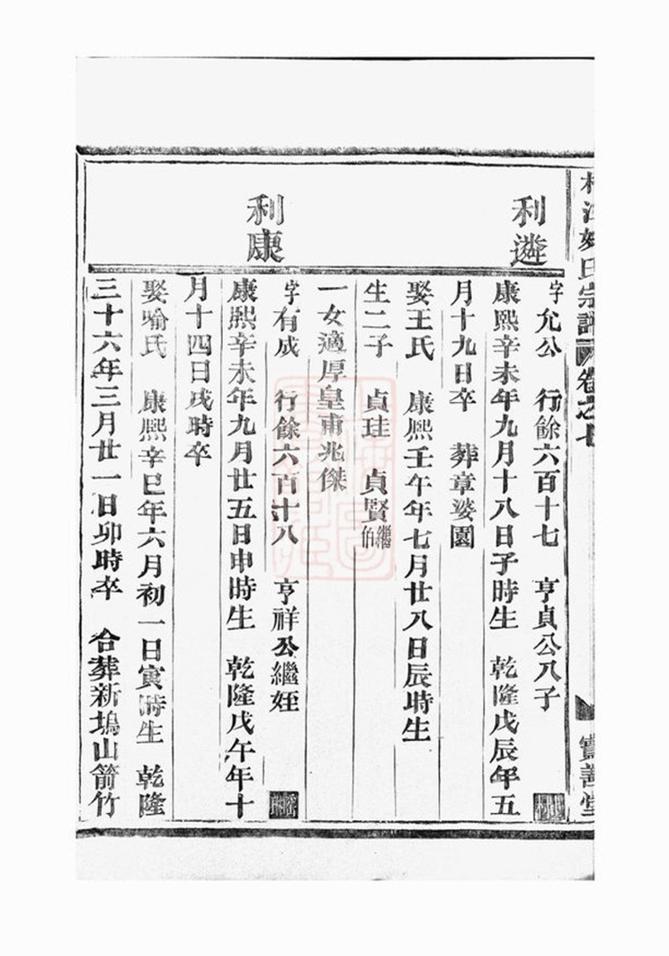 氏宗譜 卷之七 寶善堂
利遴
字允公 行餘六百十七 亨貞公八子
康熙辛未年九月十八日子時生 乾隆戊辰年五
月十九日卒 葬章婆園
娶王氏 康熙壬午年七月廿八日辰時生
生二子 貞珪 貞賢繼伯
一女適厚皇甫兆傑
利康
字有成 行餘六百十八 亨祥公繼姪
康熙辛未年九月廿五日申時生 乾隆戊午年十
月十四日戌時卒
娶喻氏 康熙辛巳年六月初一日寅時生 乾隆
三十六年三月廿一日卯時卒 合葬新塢山箭竹